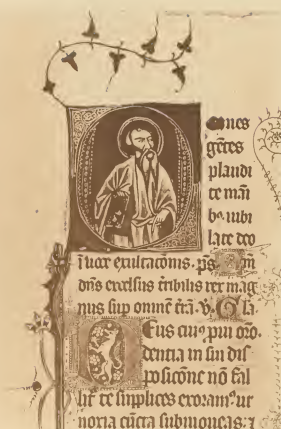 Omnes
gētes
plaudi
te māi
bꝰ iubi
late deo
ī uoce exultacōnis. p̄s. Qm̄
dn̄s excelsus tr̄ibilis rex mag
nus sup omnē trā. v̄. Gła.
Deus cuiꝰ ꝓui oro.
dentia in sui dis
posicōne nō fal
lit͛ te suplices exoramꝰ ut
noxia cūcta submoueas: ⁊